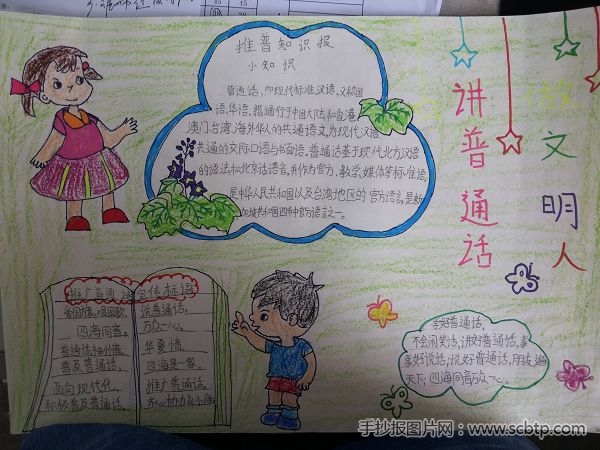 推普知识报
小知识
普通话，即现代标准汉语，又称国
语、华语，指通行于中国大陆和香港、
澳门、台湾、海外华人的共通语文，为现代汉语
共通的交际口语与书面语。普通话基于现代北方汉语
的语法和北京话语音，并作为官方、教学、媒体等标准语，
是中华人民共和国以及台湾地区的官方语言，是新
加坡共和国四种官方语言之一。
讲普通话
做文明人
推广普通话宣传标语
爱国旗，唱国歌，
四海同音。
普及普通话。
面向现代化，
积极普及普通话。
说普通话，
万众一心。
华夏情，
四海是一家。
推广普通话，
齐心协力奔小康。
学好普通话，
不会闹笑话，讲好普通话，事
事好说话，说好普通话，朋友遍
天下，四海同音万众一心。
手抄报图片网：www.scbtp.com